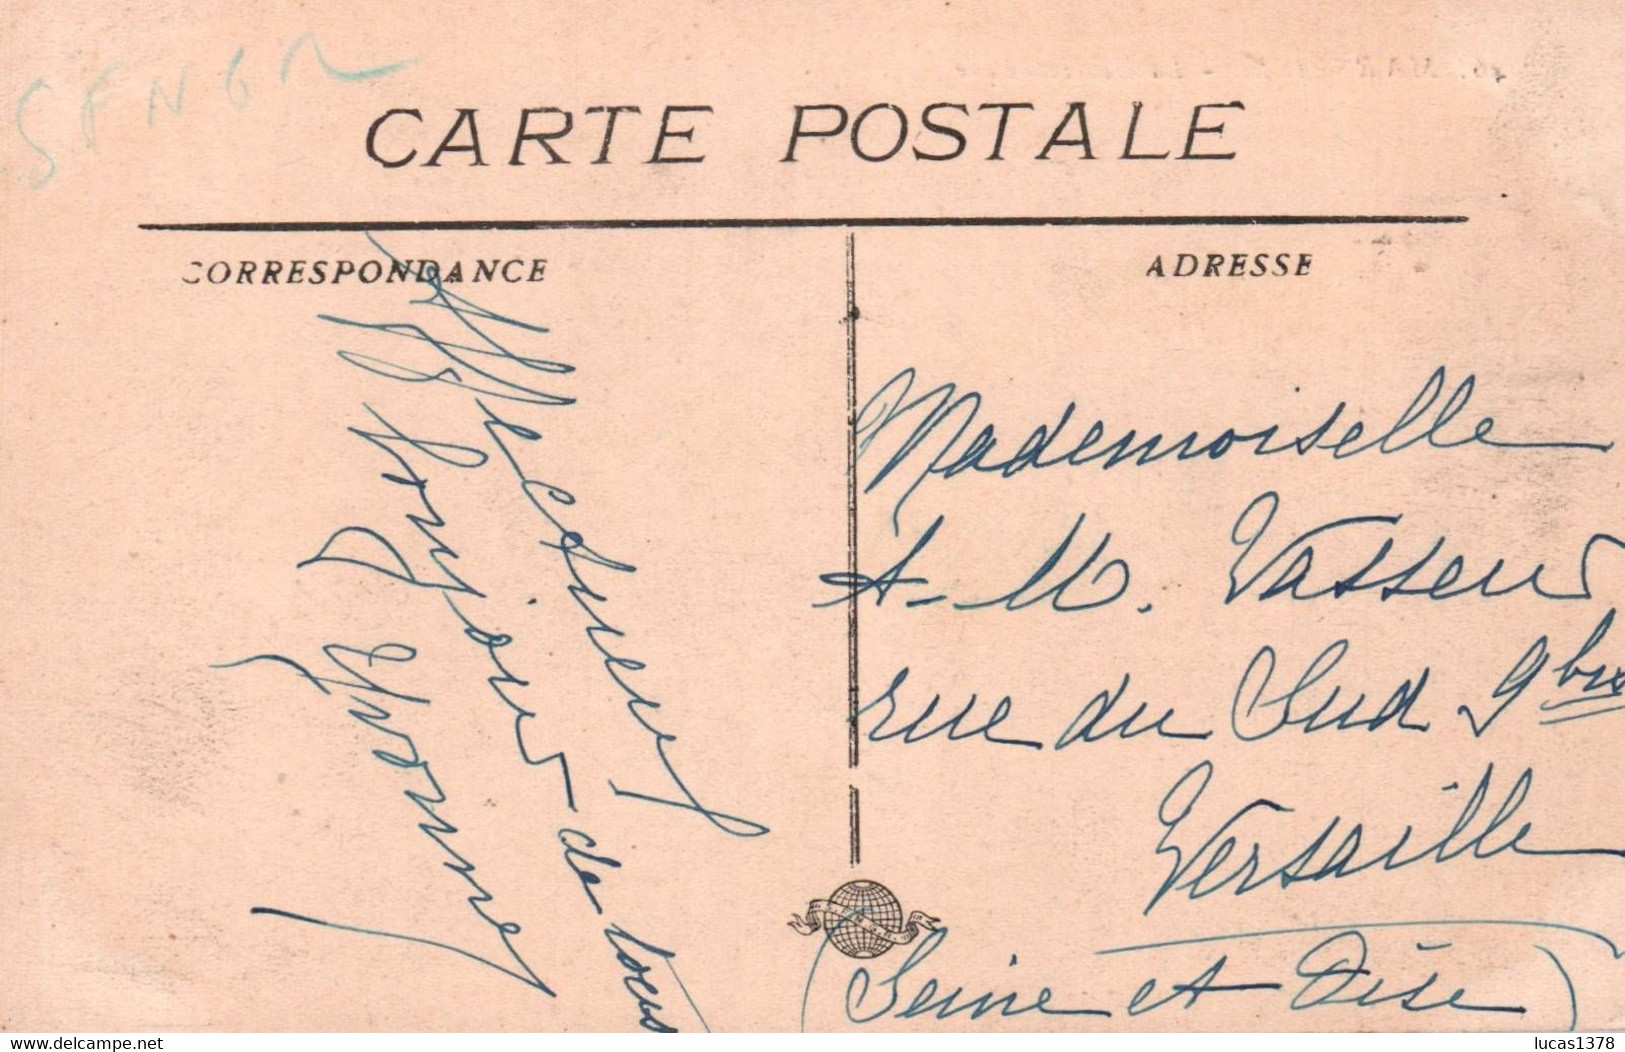 SFNGR
CARTE POSTALE
CORRESPONDANCE
ADRESSE
Affectueux
bonjour de tous
Yvonne
Mademoiselle
A-M. Vasseur
rue du Sud 9 bis
Versaille
(Seine et Oise)
www.delcampe.net
lucas1378